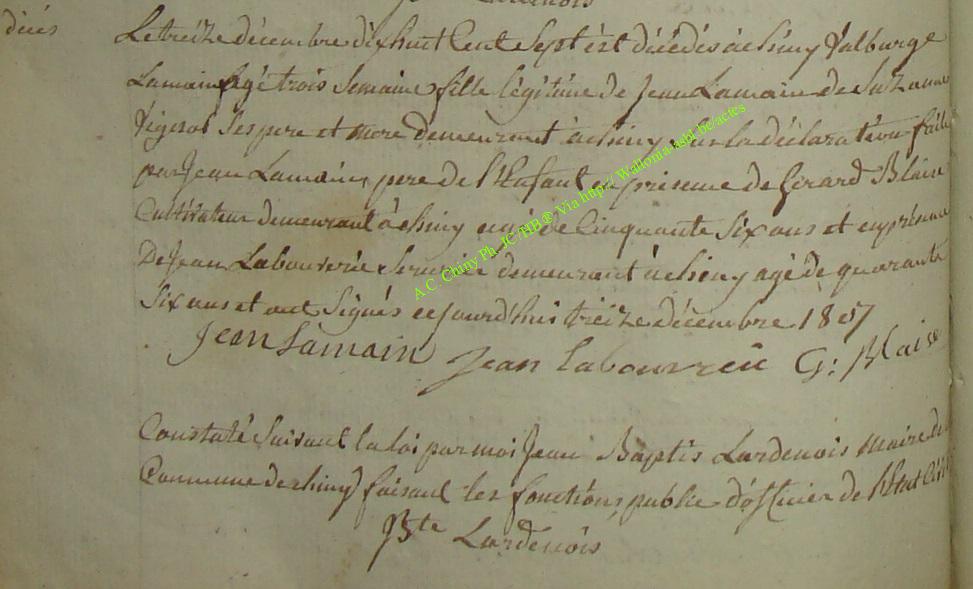 Lardenois
dicis
Le treize décembre dixhuit Cent Sept est décédés à chiny Valburge
Lamain agé trois Semaine fille légitime de Jean Lamain de Suzanne
Vigerol Ses pere et more demeurant à chiny Sur la déclaration faite
par Jean Lamain, pere de l'Enfant en présence de Girard Blaise
Cultivateur demeurant à chiny agé de Cinquante Six ans et en présence
De Jean Labouverie demeurant à chiny agé de quarante
Six ans et ont Signés cejourd'hui treize décembre 1807
Jean Lamain Jean labouvreie G: Blaise
Constaté Suivant la loi par moi Jean Baptis Lardenois Maire de
Commune de chiny faisant les fonctions public d'officier de l'Etat Civil
Bte Lardenois
A.C. Chiny Ph. JC /HB® Via http:// Wallonia-asbl.be/actes